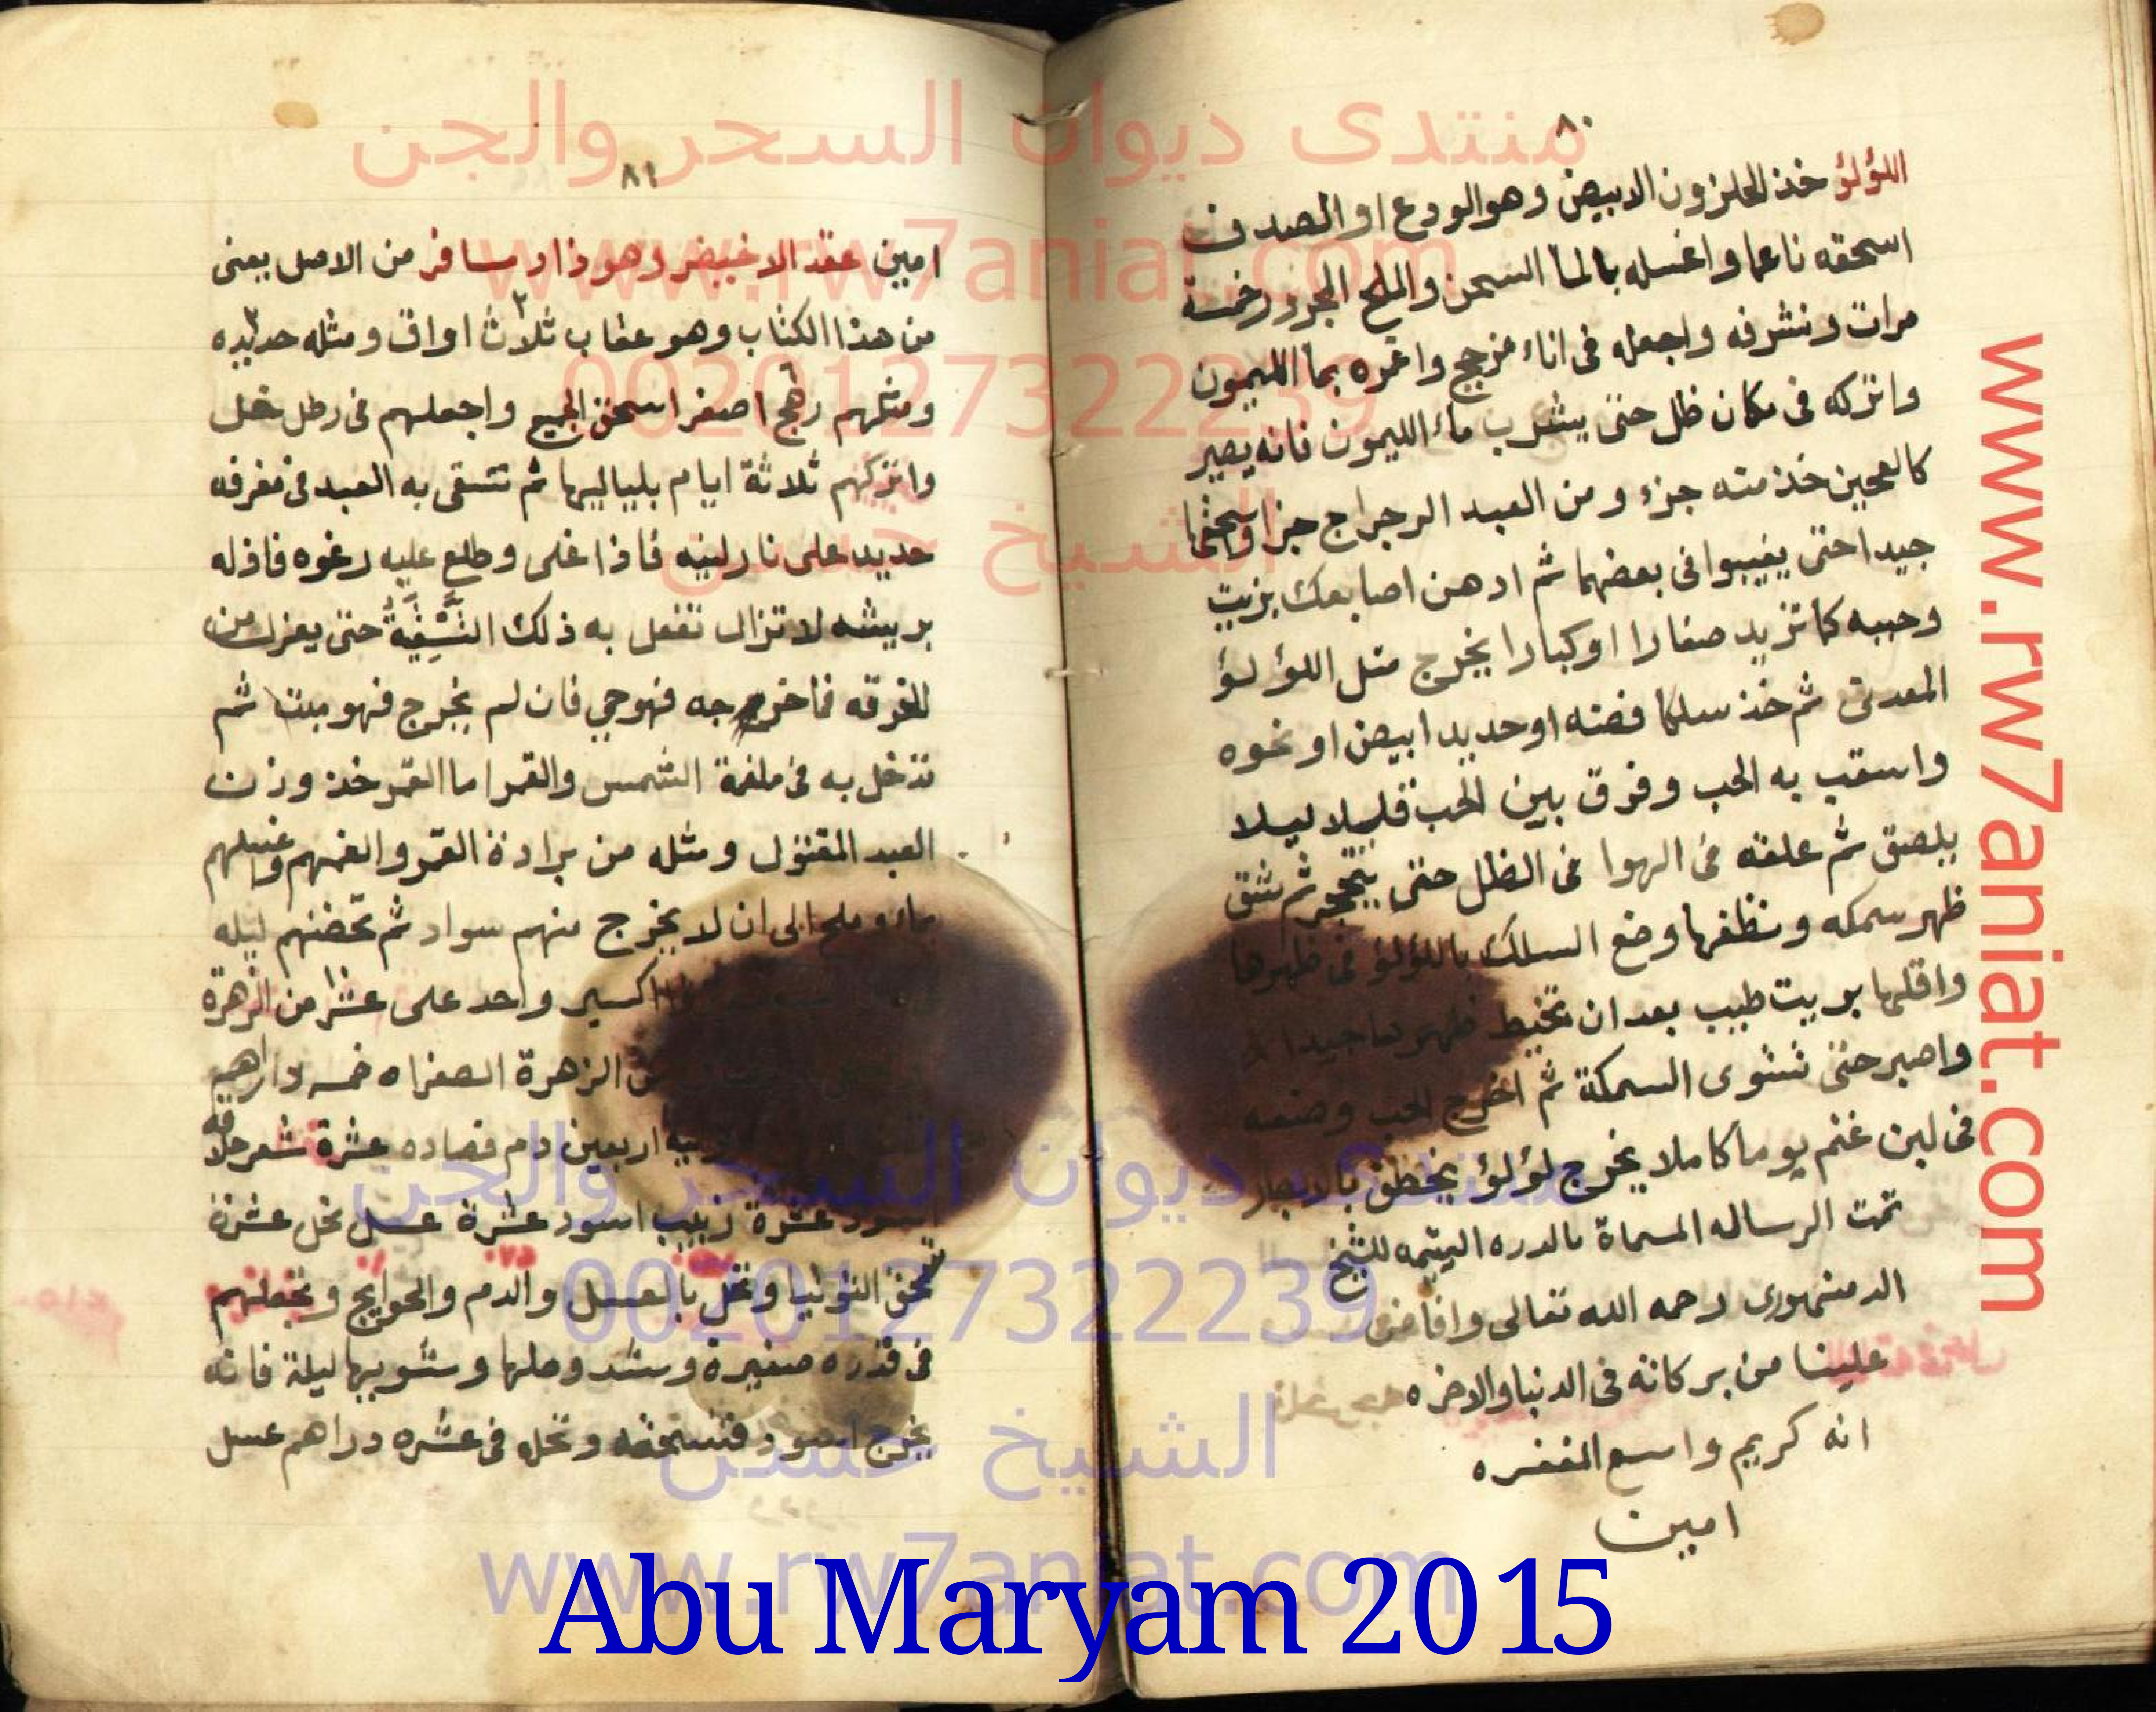 ٨٠
اللؤلؤ خذ الحلزون الابيض وهو الودع او الصدف
اسحقه ناعما واغسله بالما السخن والملح الجرد خمسة
مرات ونشرفه واجعله فى اناء مزجج واغمره بما الليمون
واتركه فى مكان ظل حتى يشرب ماء الليمون فانه يصير
كالعجين خذ منه جزء ومن العبد الرجراج جزا واسحقها
جيدا حتى يغيبوا فى بعضهما ثم ادهن اصابعك بزيت
وحببه كما تريد صغارا او كبارا يخرج مثل اللؤلؤ
المعدنى ثم خذ سلكا فضه او حديد ابيض او نحوه
واسقب به الحب وفرق بين الحب قليلا ليلا
يلصق ثم علقه فى الهوا فى الظل حتى يتحجر ثم شق
ظهر سمكه ونظفها وضع السلك باللؤلؤ فى ظهرها
واقليها بزيت طيب بعد ان تخيط ظهرها جيدا
واصبر حتى تشوى السمكة ثم اخرج الحب وضعه
فى لبن غنم يوما كاملا يخرج لؤلؤ يخطف بالابصار
تمت الرساله المسماة بالدره اليتيمه للشيخ
الدمنهورى رحمه الله تعالى وافاض
علينا من بركاته فى الدنيا والاخره
انه كريم واسع المغفره
امين
٨١
امين عقد الاغيبر وهو ذا ار مسافر من الاصل يعنى
من هذا الكتاب وهو عقاب ثلاث اواق ومثله حديده
ومثلهم رهج اصفر اسحق الجميع واجعلهم فى رطل خل
واتركهم ثلاثة ايام بلياليها ثم تسقى به العبد فى مغرفه
حديد على نار لينه فاذا غلى وطلع عليه رغوه فازله
بريشه لا تزال تفعل به ذلك التسقية حتى يعزل من
المغرفه فاخرجه فهو حي فان لم يخرج فهو ميت ثم
تدخل به فى ملغمة الشمس والقمر اما القمر خذ وزن
العبد المقتول ومثله من برادة القمر والغمهم واغسلهم
بماء وملح الى ان لا يخرج منهم سواد ثم تحضنهم ليله
اكسير واحد على عشرا من الزهرة
الزهرة الصفراه خمسه دراهم
اربعين دم فصاده عشرة شعر حلاقه
اسود عشرة زبيب اسود عشرة عسل نحل عشرة
تسحق التوتيا وتخل بالعسل والدم والحوايج وتجعلهم
فى قدره صغيره وسد وصلها وشويها ليلة فانه
يخرج اسود فتسحقه وتخله فى عشره دراهم عسل
منتدى ديوان السحر والجن
www.rw7aniat.com
0020127322239
الشيخ حسن
منتدى ديوان السحر والجن
0020127322239
الشيخ حسن
www.rw7aniat.com
www.rw7aniat.com
Abu Maryam 2015